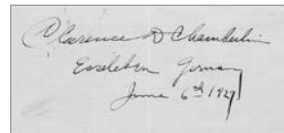 Clarence D Chamberlin
Eisleben Germany
June 6th 1927